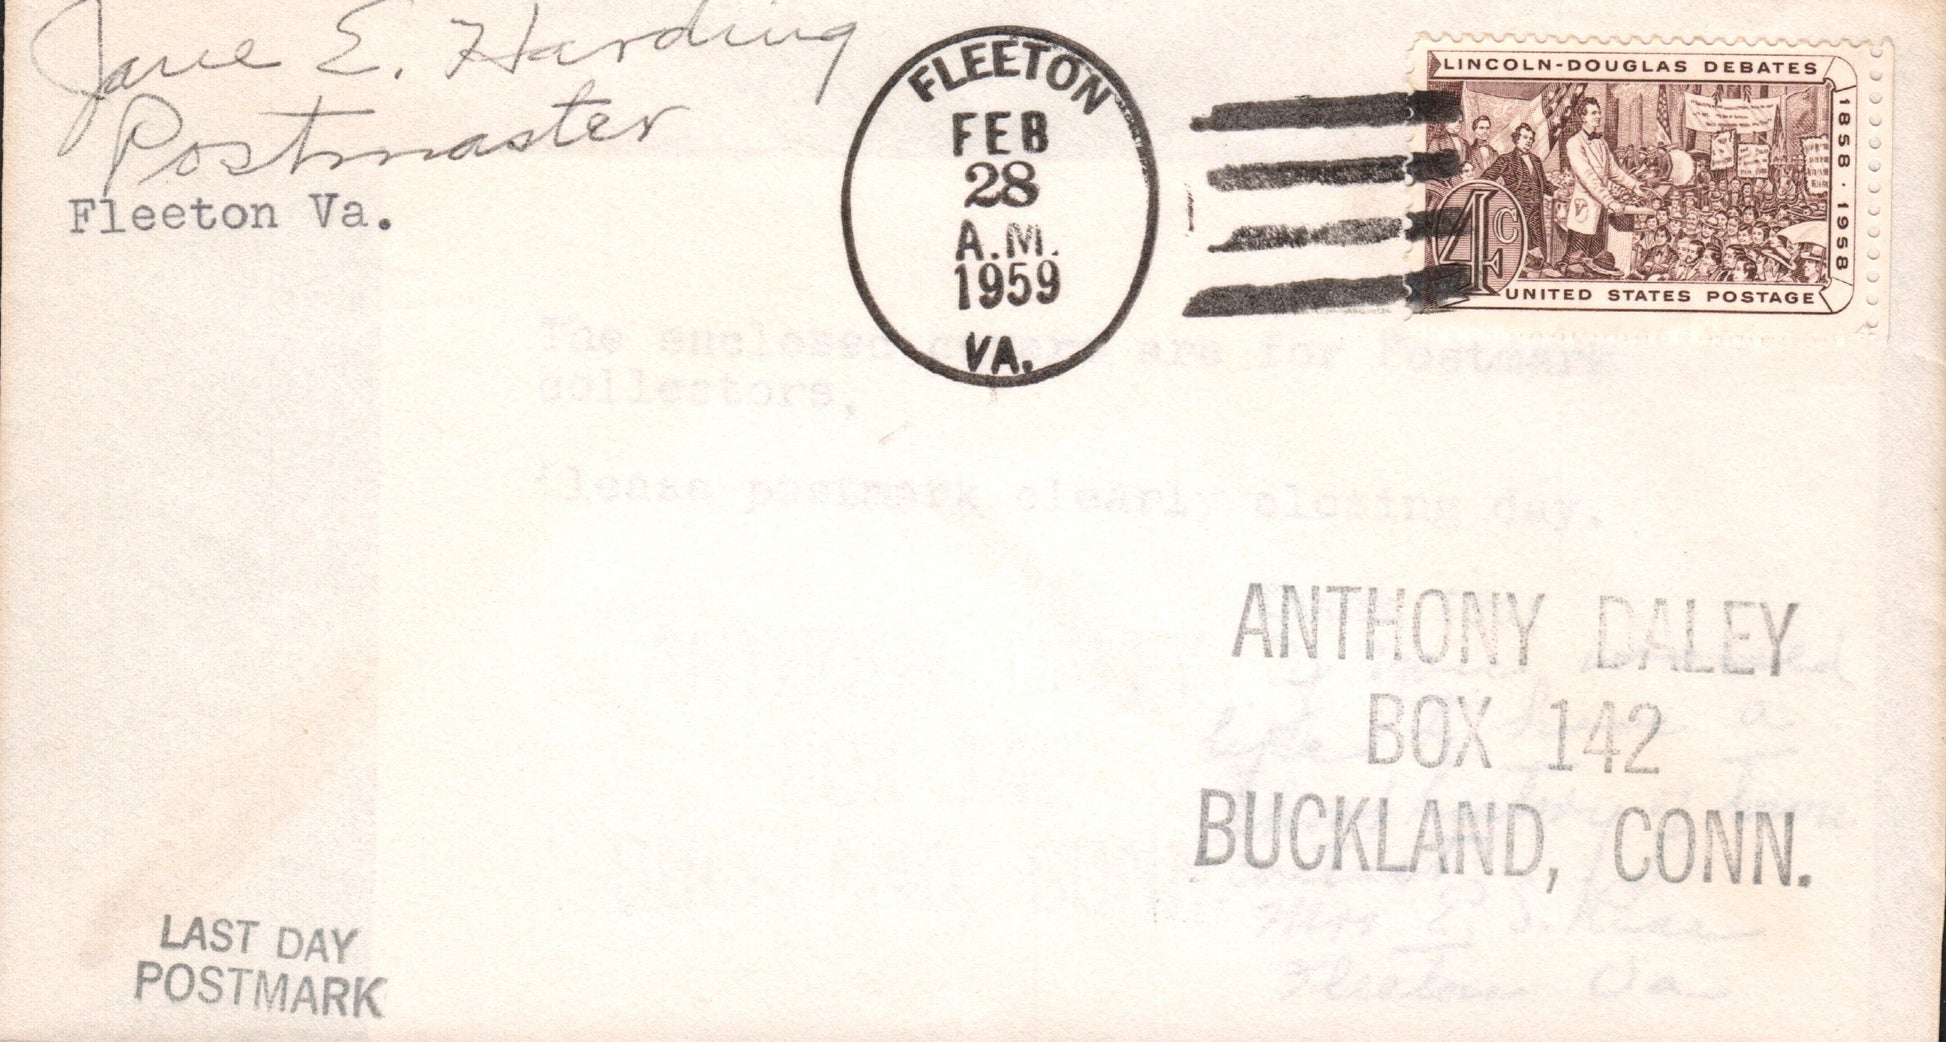 Jane E. Harding
Postmaster
Fleeton Va.
FLEETON
FEB
28
A.M.
1959
VA.
LINCOLN-DOUGLAS DEBATES
1858 · 1958
4c
UNITED STATES POSTAGE
The enclosed covers are for Postmark
collectors,
lease postmark clearly closing day.
ANTHONY DALEY
BOX 142
BUCKLAND, CONN.
a
Fleeton Va
LAST DAY
POSTMARK